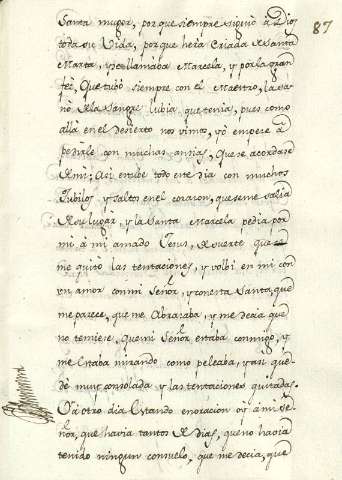 87
Santa muger, porque siempre siguió à Dios
toda su Vida, porque hera Criada de Santa
Marta, y se llamába Marcela, y por la gran
feè, que tubó siempre con el Maestro, la sa-
nò de la sangre lubia que tenia, pues como
allà en el desierto nos vimos, yò empecè à
pedirle con muchas ansias, que se acordáse
de mi; Asi estube todo este dia con muchos
Jubilos y saltos en el corazon, que se me salia
de su lugar, y la Santa Marcela pedia por
mi à mi amado Jesus, de suerte que
me quitò las tentaciones, y volbi en mi con
un amor con mi Señor, y con esta Santa, que
me parece, que me Abrazaba, y me decia que
no temiese, que mi Señor estaba conmigo, y
me Estaba mirando como peleaba, y asi que-
dè muy consolada y las tentaciones quitadas.
Otro dia Estando en oracion oy à mi Se-
ñor, que havia tantos de dias, que no havia
tenido ningun consuelo, que me decia, que